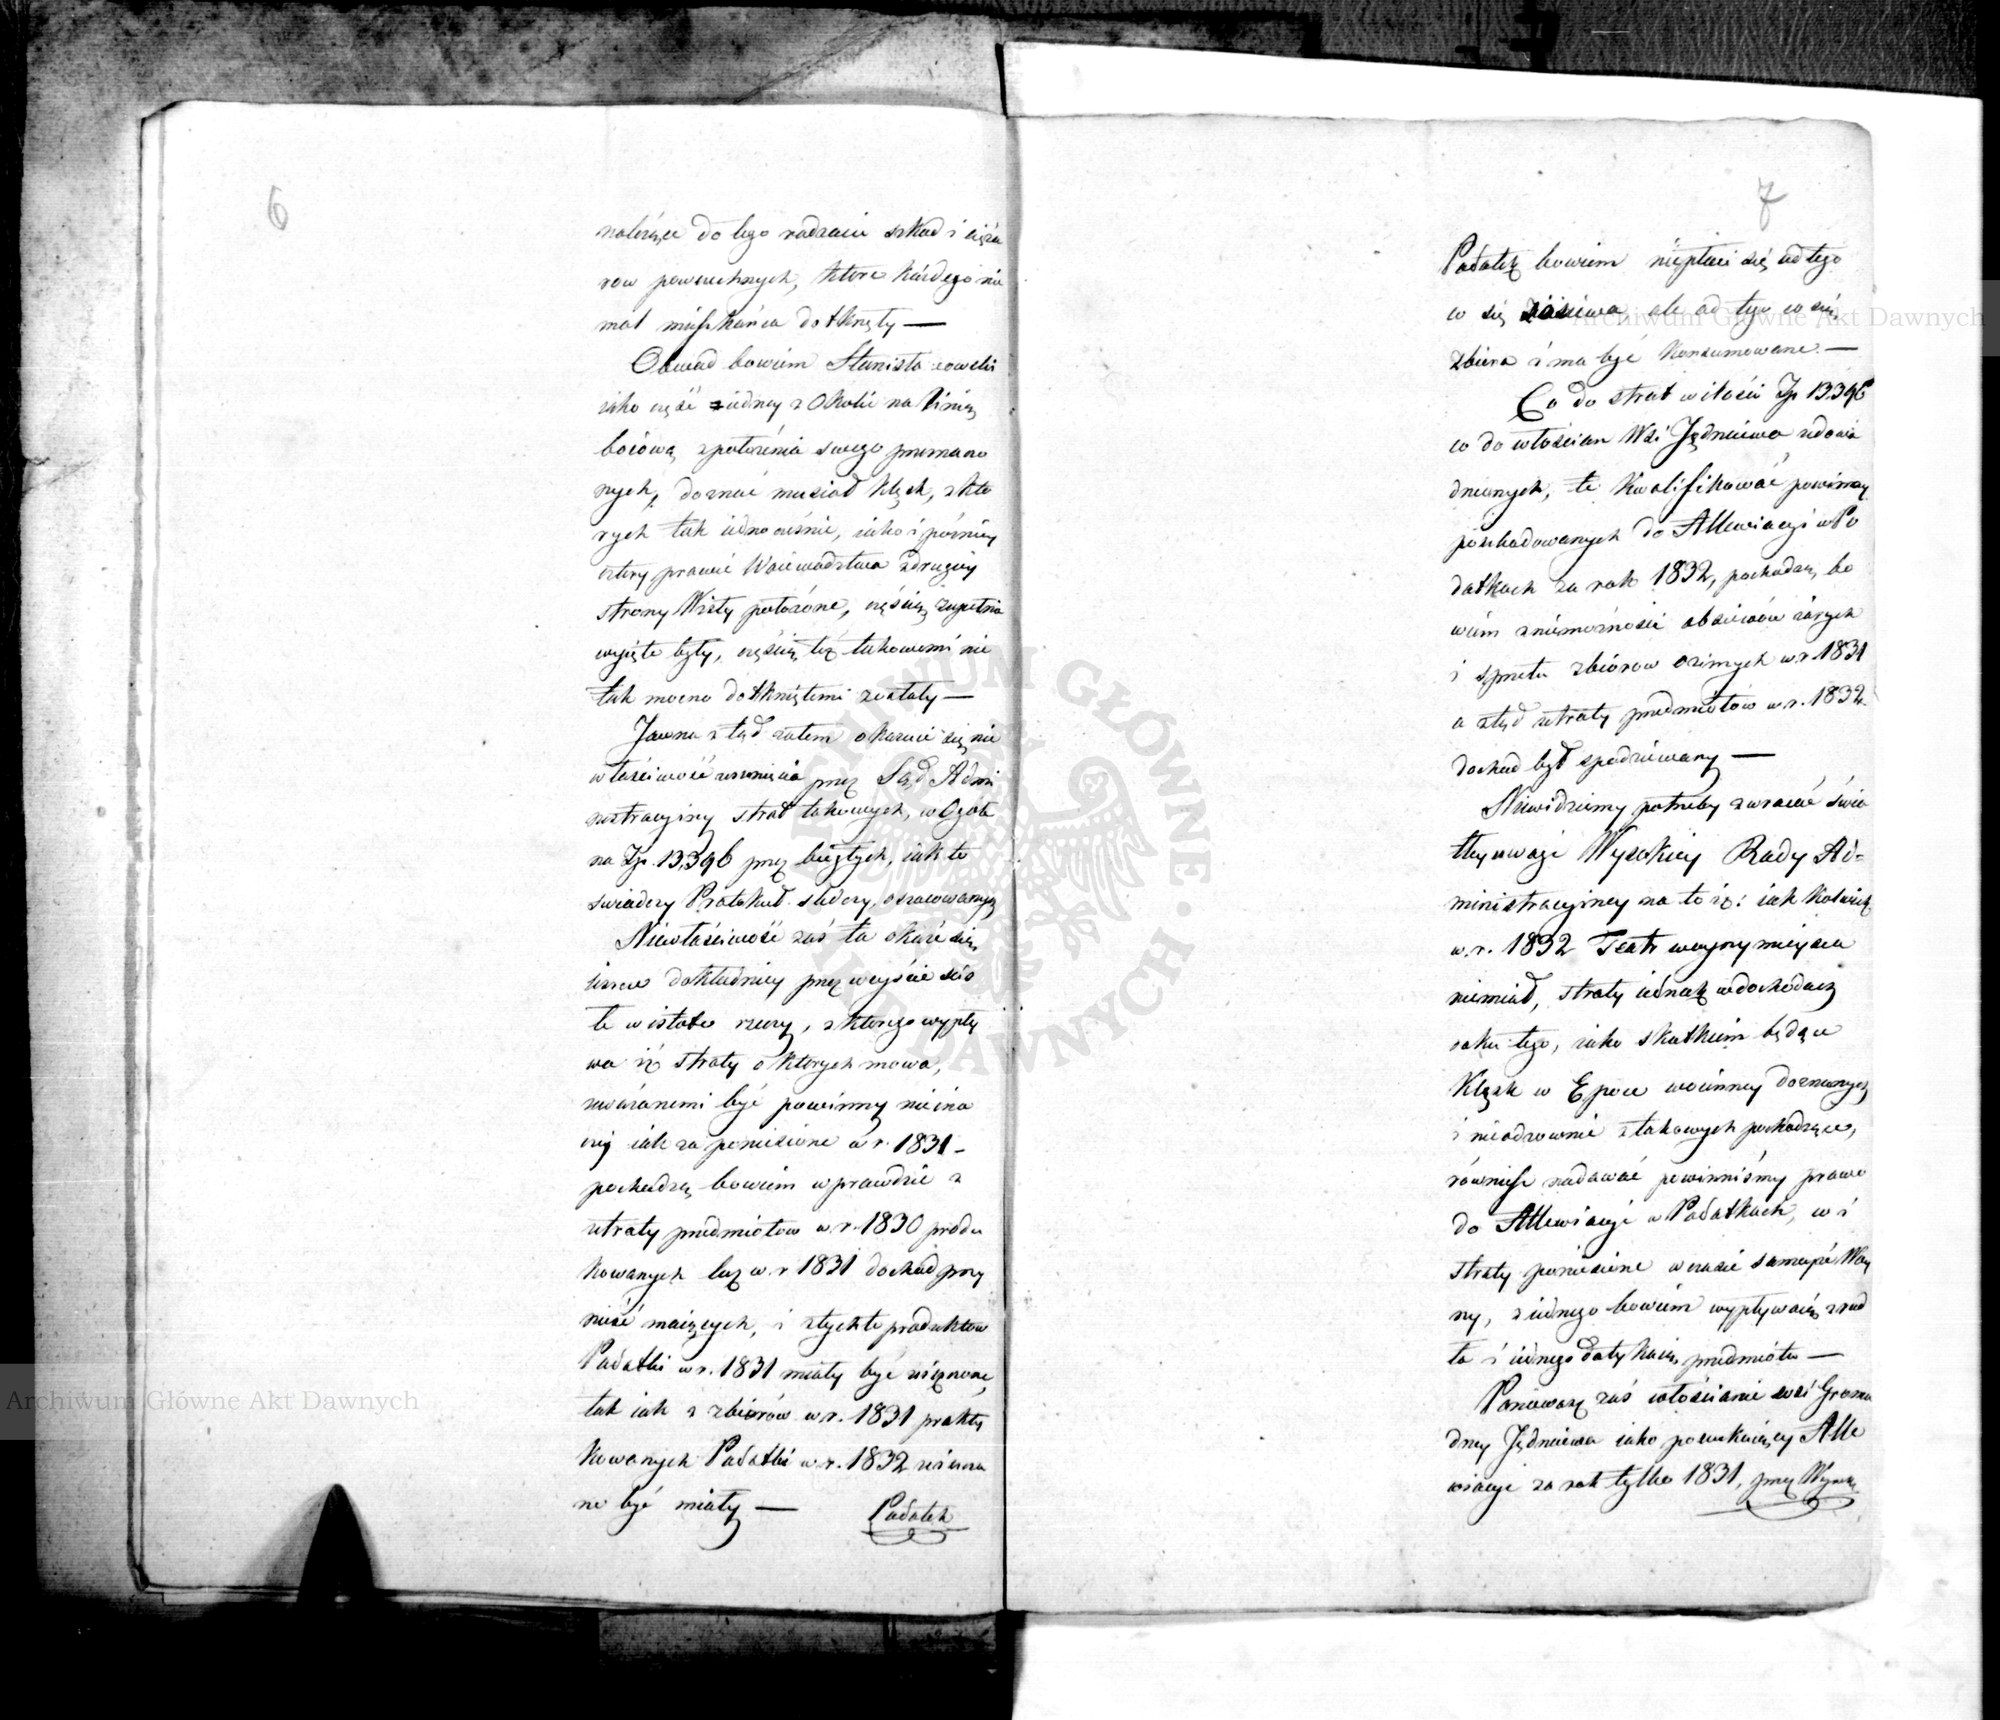 6
należące do tego rodzaiu szkod i cięża
row powszechnych, ktore każdego nie
mal mieszkańca dotknęły —
Obwod bowiem Stanisławowski
iako część iedney z Okolic na linię
boiową z położenia swego przezna
nych, doznać musiał klęsk, z kto
rych tak iednocześnie, iako i pózniey
cztery prawie Woiewodztwa z drugiey
strony Wisły położone, częścią zupełnie
wyięte były, częścią też takowemi nie
tak mocno dotkniętemi zostały —
Jawna ztąd zatem okazuie się nie
właściwość usunięcia przez Sąd Admi
nistracyiny strat takowych, w Ogole
na Zp. 13,396 przez biegłych, iak to
świadczy Protokuł śledczy, oszacowanych
Niewłaściwość zaś ta okaże się
ieszcze dokładniey przez weyście ści
łe w istotę rzeczy, z ktorego wypły
wa iż straty o ktorych mowa,
uważanemi być powinny nieina
czey iak za poniesione w r. 1831 –
pochodzą bowiem wprawdzie z
utraty przedmiotow w r. 1830 produ
kowanych lecz w r 1831 dochod przy
nieść maiących, i z tychto produktow
Podatki w r. 1831 miały być uiszczone,
tak iak z zbiorów w r. 1831 produ
kowanych Podatki w r. 1832 uiszcza
ne być miały —
Podatek
7
Podatek bowiem niepłaci się od tego
co się zasiewa ale od tego co się
zbiera i ma być konsumowane. —
Co do strat w ilości Zp 13396
co do włościan Wsi Jędrzeiewa udowo
dnionych, te kwalifikować powinny
poszkodowanych do Allewiacyi w Po
datkach za rok 1832, pochodzą bo
wiem z niemożności obsiewów iarych
i sprzętu zbiorow ozimych w r. 1831
a ztąd utraty przedmiotów w r. 1832
dochod był spodziewany —
Niewidziemy potrzeby zwracać świa
tłey uwagi Wysokiey Rady Ad=
ministracyiney na to iż: iak kolwiek
w. r. 1832 Teatr woyny mieysca
niemiał, straty iednak w dochodach
roku tego, iako skutkiem będące
Klęsk w Epoce woienney doznanych
i nieodzownie z takowych pochodzące,
równieſz nadawać powinnismy prawo
do Allewiacyi w Podatkach, co i
straty poniesione w czasie sameyże Woy
ny, z iednego bowiem wypływaią zrod
ła i iednego dotykaią przedmiotu —
Ponieważ zaś włościanie wsi Groma
dney Jędrzeiewa iako poszukuiący Alle
wiacyi za rok tylko 1831, przez Wyrok
Archiwum Główne Akt Dawnych
Archiwum Główne Akt Dawnych
ARCHIWUM GŁÓWNE AKT DAWNYCH